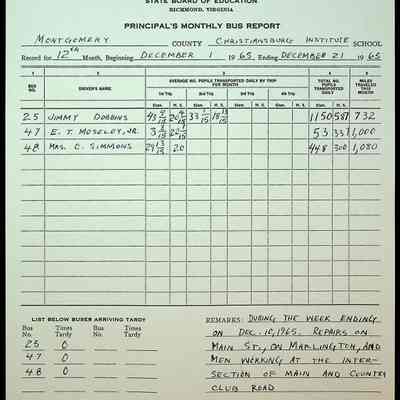 STATE BOARD OF EDUCATION
RICHMOND, VIRGINIA
PRINCIPAL'S MONTHLY BUS REPORT
MONTGOMERY COUNTY CHRISTIANSBURG INSTITUTE SCHOOL
Record for 12th Month, Beginning DECEMBER 1 1965, Ending DECEMBER 21 1965
1 2 3 4 5
BUS NO. DRIVER'S NAME AVERAGE NO. PUPILS TRANSPORTED DAILY BY TRIP FOR MONTH TOTAL NO. PUPILS TRANSPORTED DAILY MILES TRAVELED THIS MONTH
1st Trip 2nd Trip 3rd Trip 4th Trip
Elem. H. S. Elem. H. S. Elem. H. S. Elem. H. S. Elem. H. S.
25 JIMMY DOBBINS 1150 587 732
47 E. T. MOSELEY, JR. 53 337 1,000
48 MRS. C. SIMMONS 20 448 300 1,080
LIST BELOW BUSES ARRIVING TARDY
Bus No. Times Tardy Bus No. Times Tardy
25 0
47 0
48 0
REMARKS: DURING THE WEEK ENDING
ON DEC. 10, 1965. REPAIRS ON
MAIN ST., ON MARLINGTON, AND
MEN WORKING AT THE INTER-
SECTION OF MAIN AND COUNTRY
CLUB ROAD